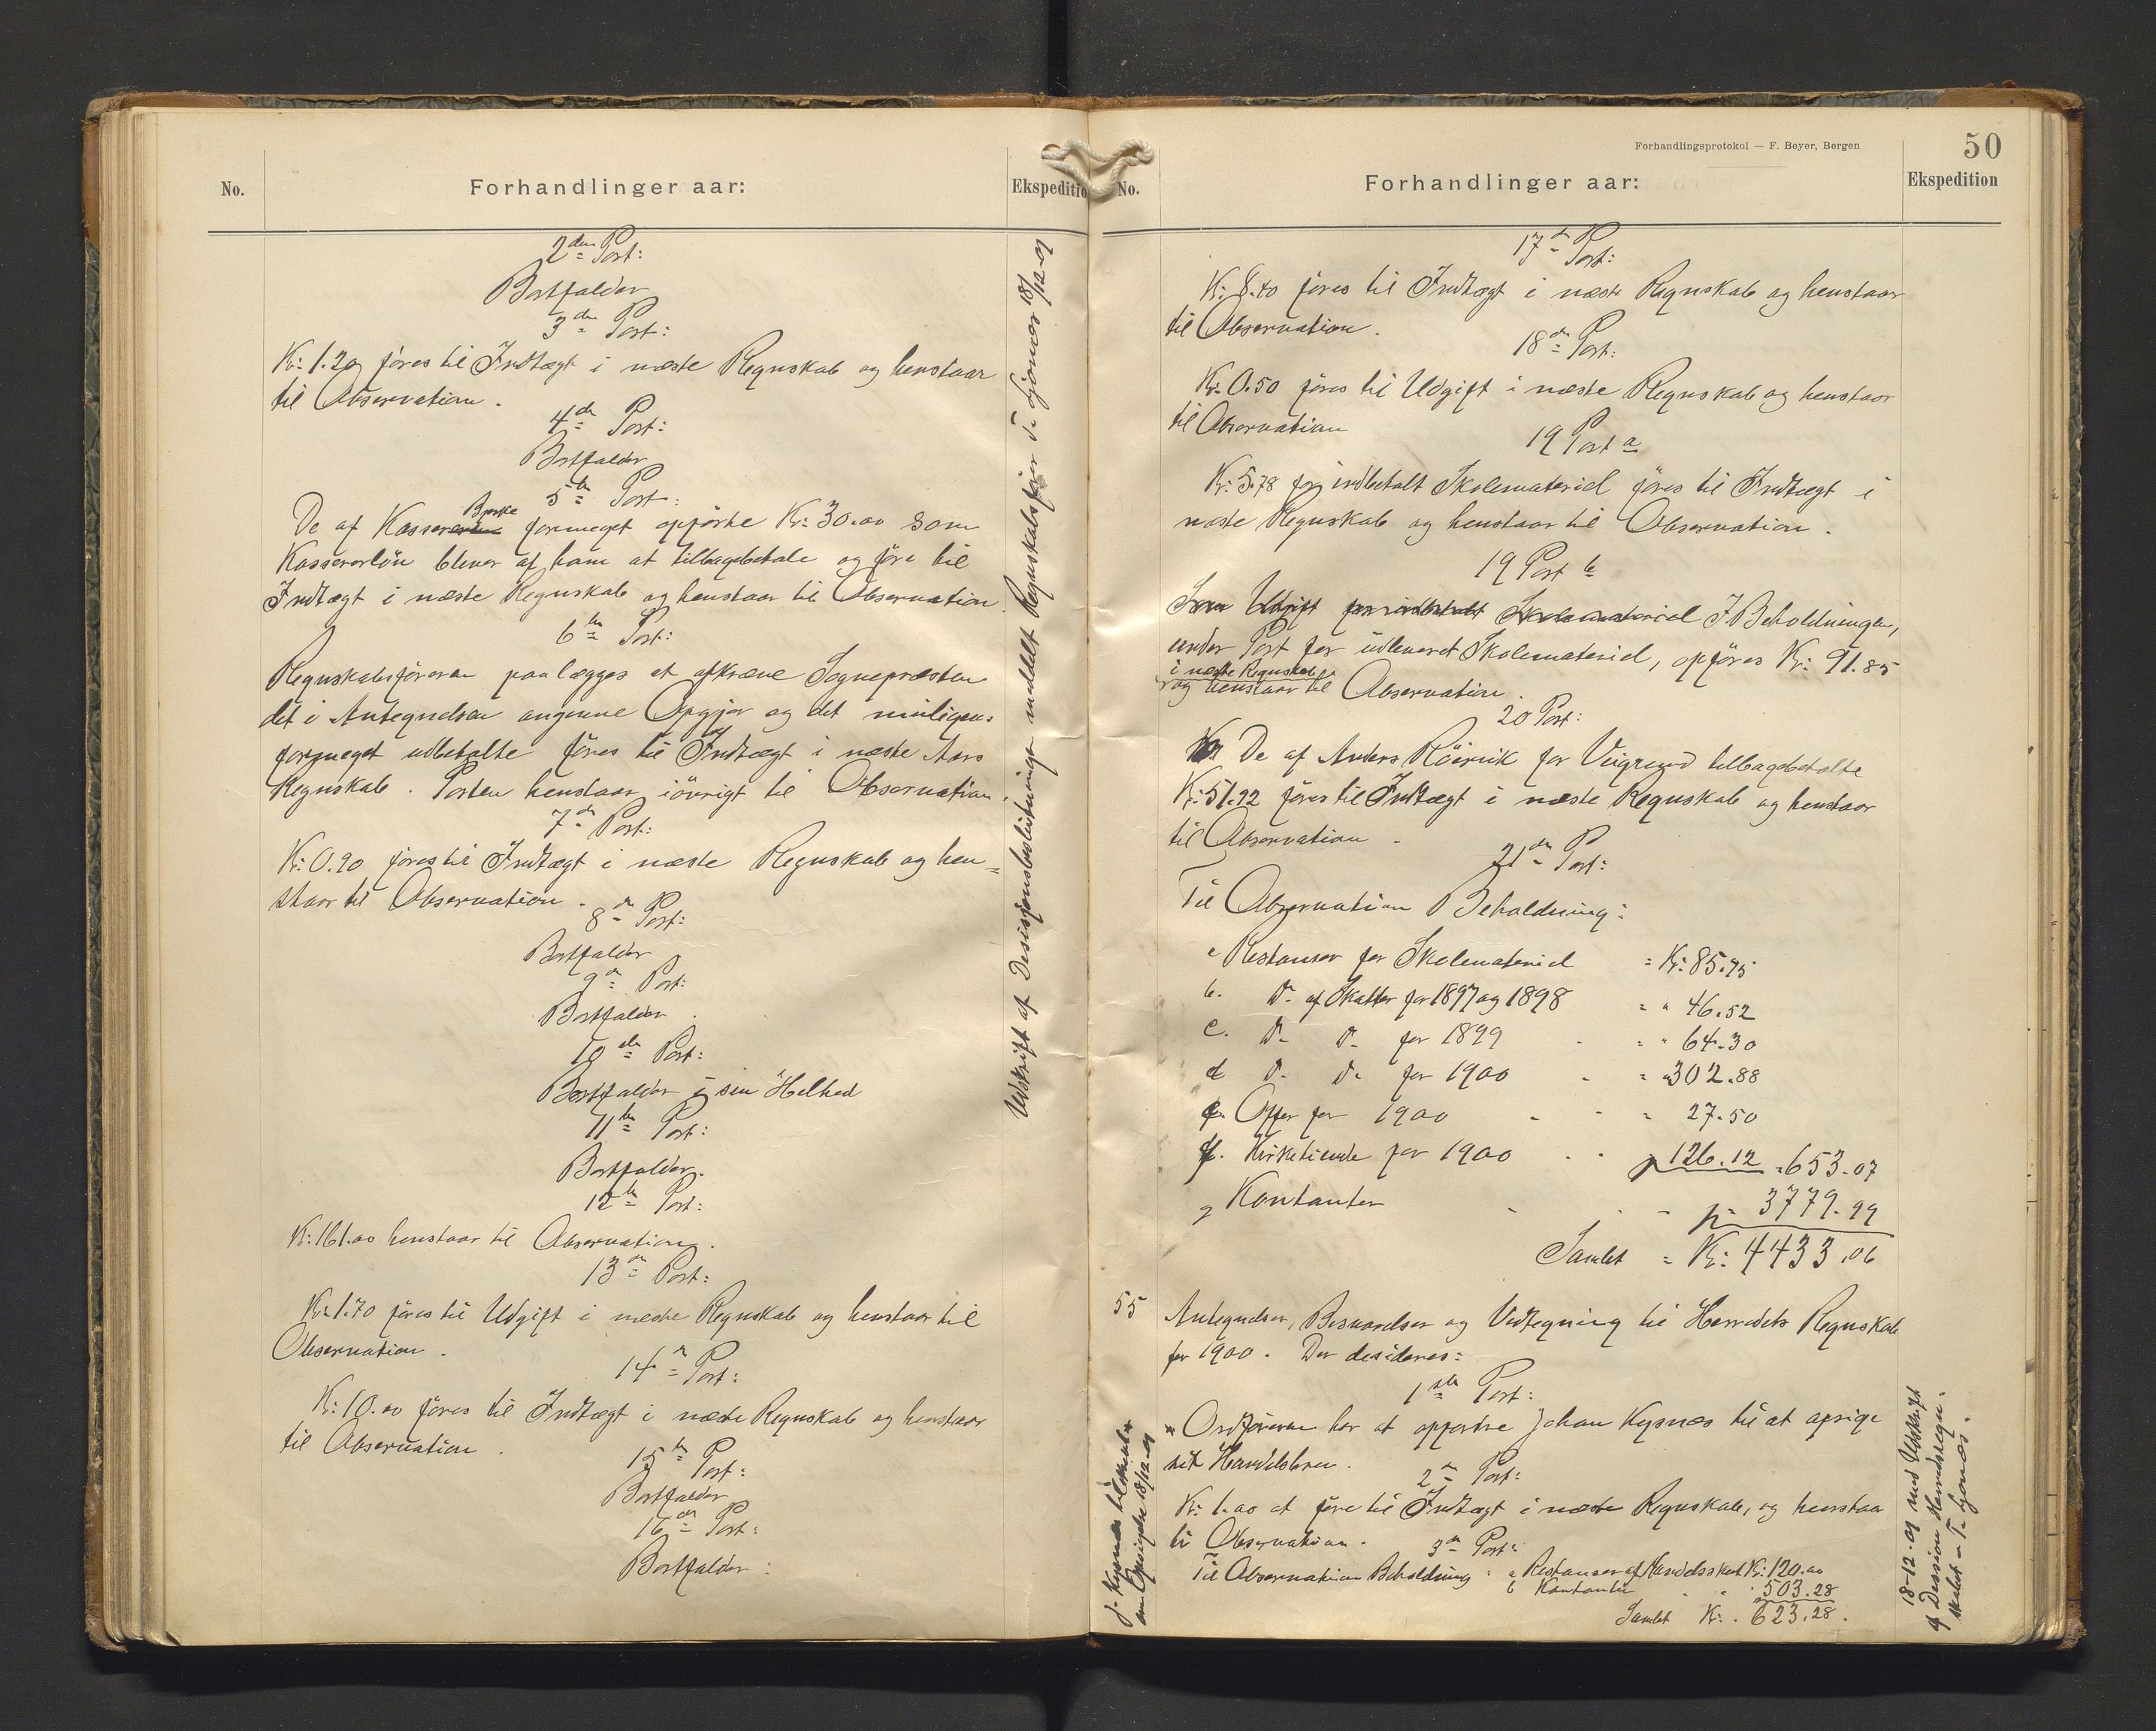 No.
Forhandlinger aar:
Ekspeditio
2den Post:
Bortfalder
3die Post:
Kr: 1.20 føres til Indtægt i næste Regnskab og henstaar
til Observation.
4de Post:
Bortfalder
5te Post:
Bjerke
De af Kasserer formeget opførte Kr: 30.00 som
Kassererløn bliver af ham at tilbagebetale og føre til
Indtægt i næste Regnskab og henstaar til Observation.
6te Post:
Regnskabsføreren paalægges at afkræve Sognepræsten
det i Antegnelsen angivne Opgjør og det
formeget udbetalte føres til Indtægt i næste Aars
Regnskab. Posten henstaar iøvrigt til Observation.
7de Post:
Kr: 0.20 føres til Indtægt i næste Regnskab og hen=
staar til Observation.
8de Post:
Bortfalder
9de Post:
Bortfalder
10de Post:
Bortfalder i sin Helhed
11te Post:
Bortfalder.
12te Post:
Kr: 161.00 henstaar til Observation.
13de Post:
Kr: 1.70 føres til Udgift i næste Regnskab og henstaar til
Observation.
14de Post:
Kr: 10.00 føres til Indtægt i næste Regnskab og henstaar
til Observation.
15de Post:
Bortfalder
16de Post:
Bortfalder:
Udskrift af Desisjonsbeslutninger meddelt Regnskabsfører T. Gjønes 18/12-01
Forhandlingsprotokol — F. Beyer, Bergen
50
No.
Forhandlinger aar:
Ekspedition
17de Post:
Kr: 8.40 føres til Indtægt i næste Regnskab og henstaar
til Observation.
18de Post:
Kr: 0.50 føres til Udgift i næste Regnskab og henstaar
til Observation
19 Post a
Kr: 5.78 for indbetalt Skolemateriel føres til Indtægt i
næste Regnskab og henstaar til Observation.
19 Post b
Som Udgift for indbetalt Skolemateriel I Beholdningen,
under Post for udleveret Skolemateriel, opføres Kr: 91.85
i næste Regnskab
og henstaar til Observation.
20 Post:
De af Anders Röirvik for Veigrund tilbagebetalte
Kr: 51.92 føres til Indtægt i næste Regnskab og henstaar
til Observation.
21de Post:
Til Observation Beholdning:
a Restanser for Skolemateriel = Kr: 85.75
b. Do af Skatter for 1897 og 1898 = " 46.52
c. Do Do for 1899 - = " 64.30
d Do Do for 1900 - = " 302.88
e. Offer for 1900 - - = 27.50
f. Kirketiende for 1900 - - " 126.12 = 653.07
g Kontanter - - - " 3779.99
Samlet = Kr: 4433.06
55
Antegnelser, Besvarelser og Vedtegning til Herredets Regnskab
for 1900. Der desideres:
1ste Post:
Ordføreren har at opfordre Johan Kysnes til at opsige
sit Handelsbrev.
2den Post:
Kr: 1.00 at føre til Indtægt i næste Regnskab, og henstaa
til Observation.
3die Post:
Til Observation Beholdning: a Restanser af Handelsskat Kr: 120.00
b Kontanter " 503.28
Samlet Kr: 623.28.
J. Kysnes tilskrevet
om Opsigelse 18/12-01
18-12-01 med Udskrift
af Desision Herredsregn=
skabet - T. Gjønes.